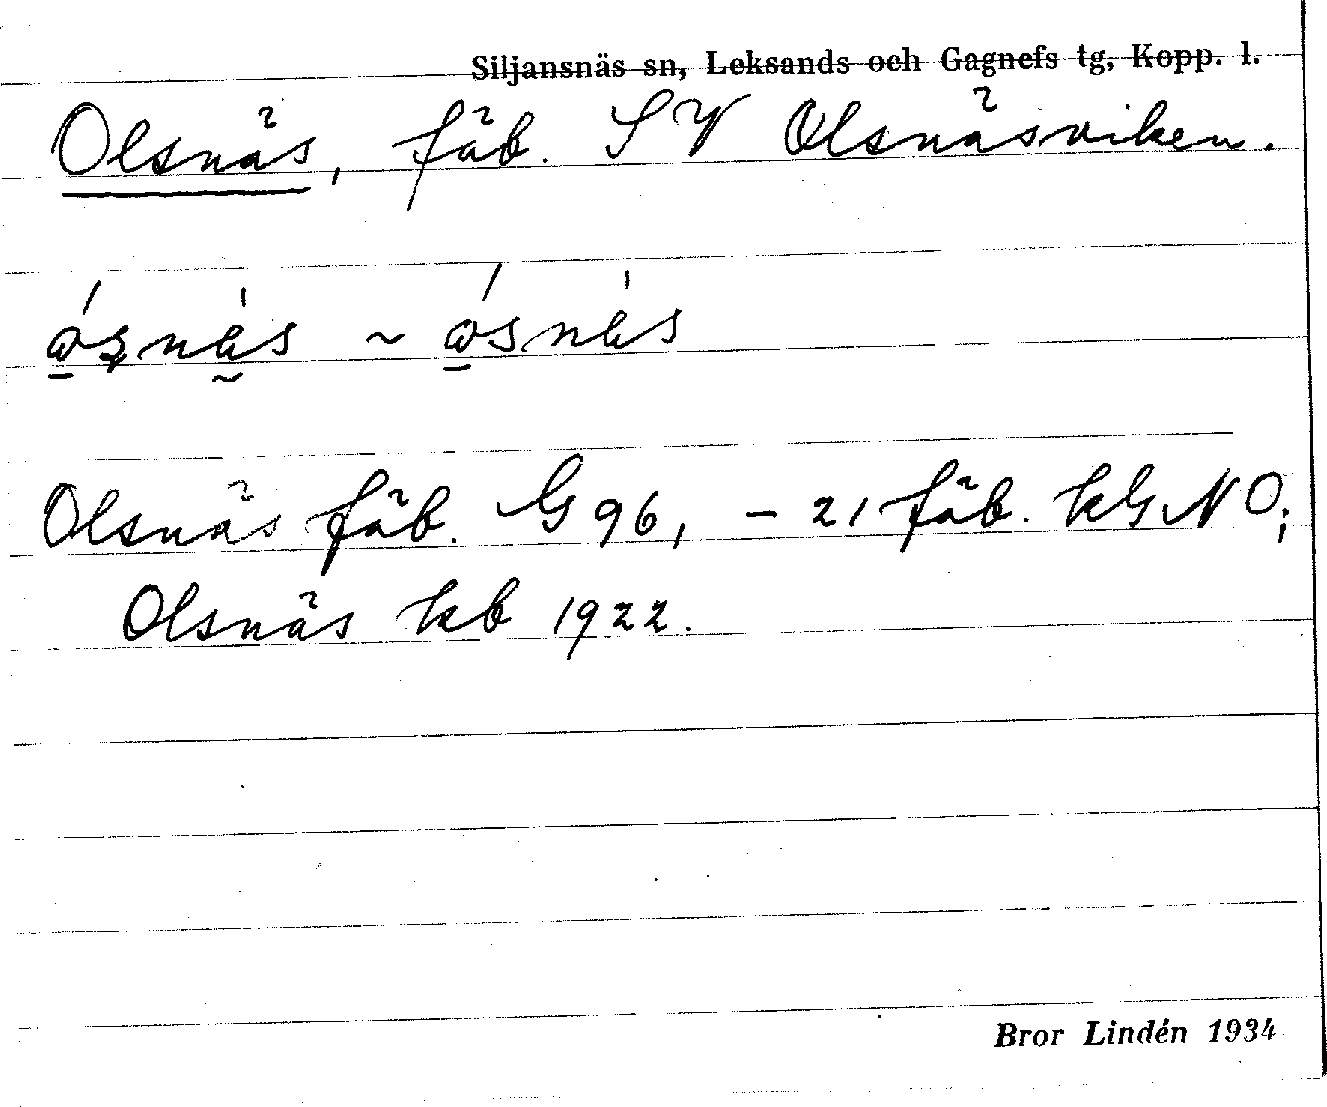 Siljansnäs sn, Leksands och Gagnefs tg, Kopp. l.
Olsnäs, fäb. SV Olsnäsviken.
Olsnäs fäb. G 96, – 21 fäb. NO;
Olsnäs kb 1922.
Bror Lindén 1934